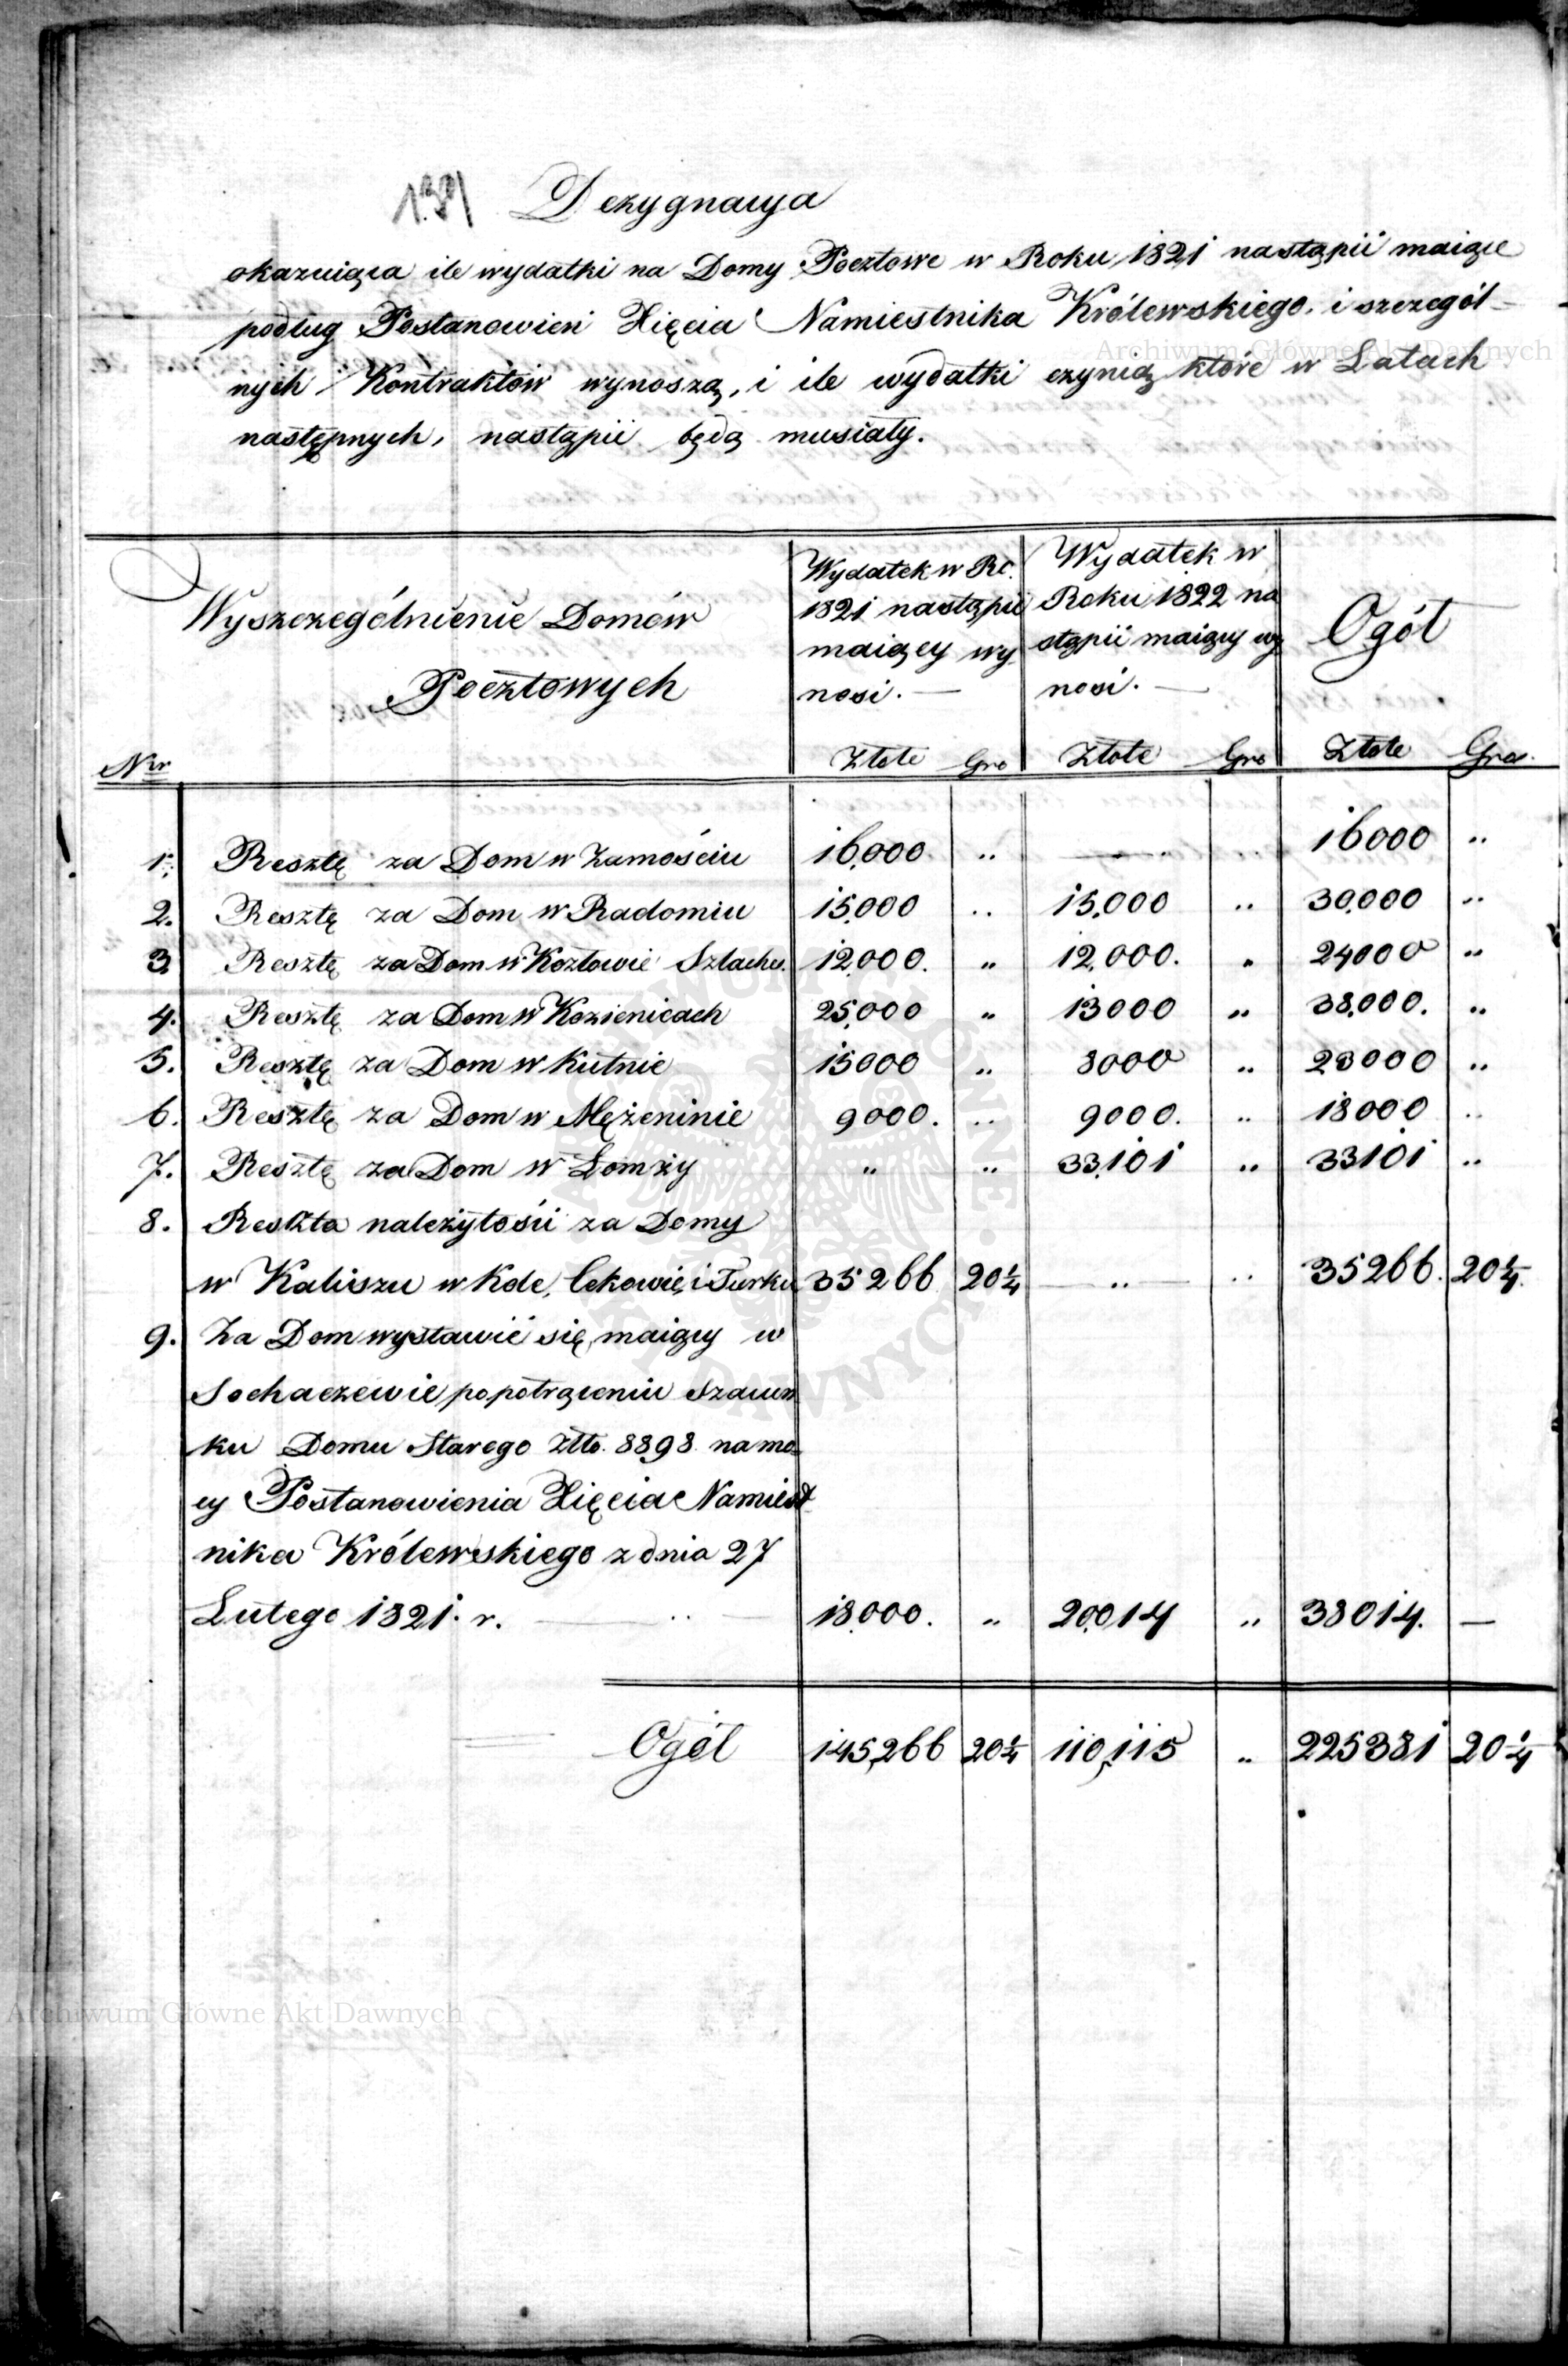 131 Dezygnacya
okazuiąca ile wydatki na Domy Pocztowe w Roku 1821 nastąpić maiące
podług Postanowień Xięcia Namiestnika Królewskiego, i szczegól-
nych Kontraktów wynoszą, i ile wydatki czynią które w Latach
następnych, nastąpić będą musiały.
Archiwum Główne Akt Dawnych
Wyszczególnienie Domów
Pocztowych
Wydatek w Rc.
1821 nastąpić
maiący wy
nosi. —
Wydatek w
Roku 1822 na
stąpić maiący wy
nosi. —
Ogół
Nr Złote Gro Złote Gro Złote Gro.
1. Resztę za Dom w Zamościu 16,000 .. — .. 16000 ..
2. Resztę za Dom w Radomiu 15,000 .. 15,000 .. 30,000 ..
3. Resztę za Dom w Kozłowie Szlache. 12,000. „ 12,000. „ 24000 „
4. Resztę za Dom w Kozienicach 25,000 „ 13000 „ 38,000. „
5. Resztę za Dom w Kutnie 15000 „ 8000 „ 23000 „
6. Resztę za Dom w Mężeninie 9000. .. 9000. .. 18000 ..
7. Resztę za Dom w Łomży „ „ 33,101 „ 33101 „
8. Reszta należytości za Domy
w Kaliszu w Kole, Cekowie, i Turku 35266 20¼ — „ — .. 35266. 20¼.
9. Za Dom wystawić się maiący w
Sochaczewie po potrąceniu Szacun
ku Domu Starego Złto. 8898 na mo-
cy Postanowienia Xięcia Namiest
nika Królewskiego z dnia 27
Lutego 1821. r. — .. — 18,000. „ 20,014 „ 38014. —
Ogół 145,266 20¼ 110,115 „ 225381 20¼
Archiwum Główne Akt Dawnych